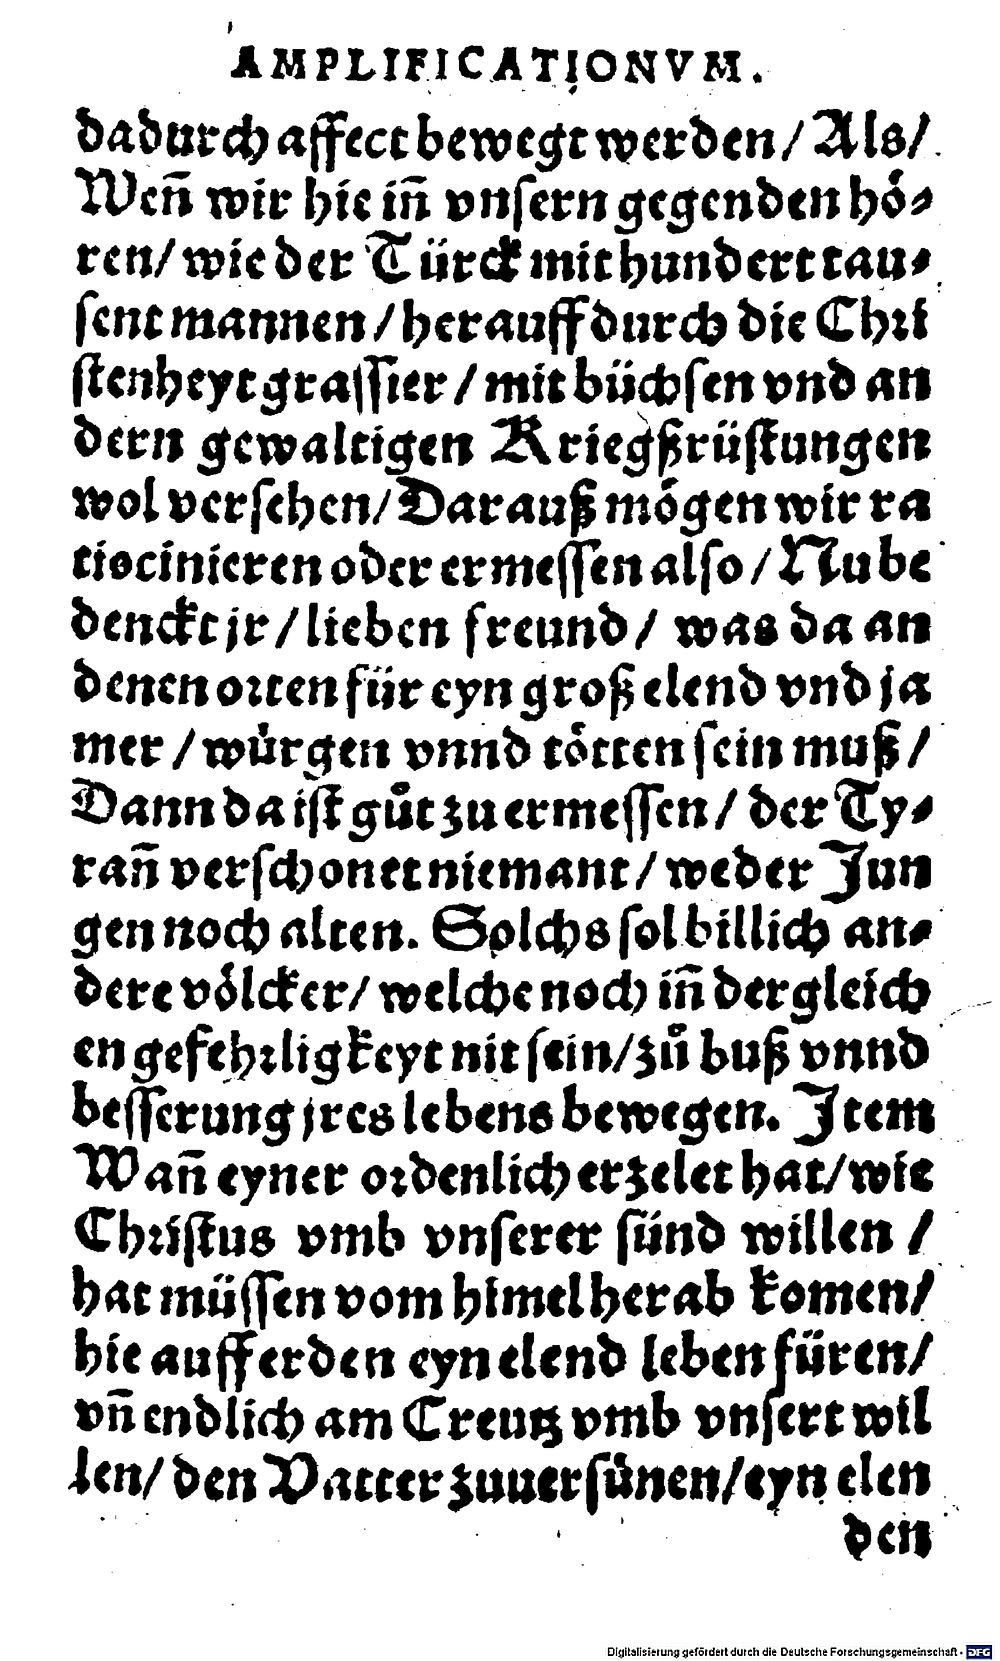 AMPLIFICATIONVM.
dadurch affect bewegt werden / Als /
Weñ wir hie iñ vnsern gegenden hoͤ⸗
ren / wie der Türck mit hundert tau⸗
sent mannen / herauff durch die Chri
stenheyt grassier / mit büchsen vnd an
dern gewaltigen Kriegßrüstungen
wol versehen / Darauß moͤgen wir ra
tiocinieren oder ermessen also / Nu be
denckt jr / lieben freund / was da an
denen orten für eyn groß elend vnd ja
mer / wuͤrgen vnnd toͤtten sein muß /
Dann da ist guͦt zu ermessen / der Ty⸗
rañ verschonet niemant / weder Jun
gen noch alten. Solchs sol billich an⸗
dere voͤlcker / welche noch iñ dergleich
en gefehrligkeyt nit sein / zuͦ buß vnnd
besserung jres lebens bewegen. Item
Wañ eyner ordenlich erzelet hat / wie
Christus vmb vnserer sünd willen /
hat müssen vom himel herab komen /
hie auff erden eyn elend leben füren /
vñ endlich am Creutz vmb vnsert wil
len / den Vatter zuuersuͤnen / eyn elen
den
Digitalisierung gefördert durch die Deutsche Forschungsgemeinschaft - DFG